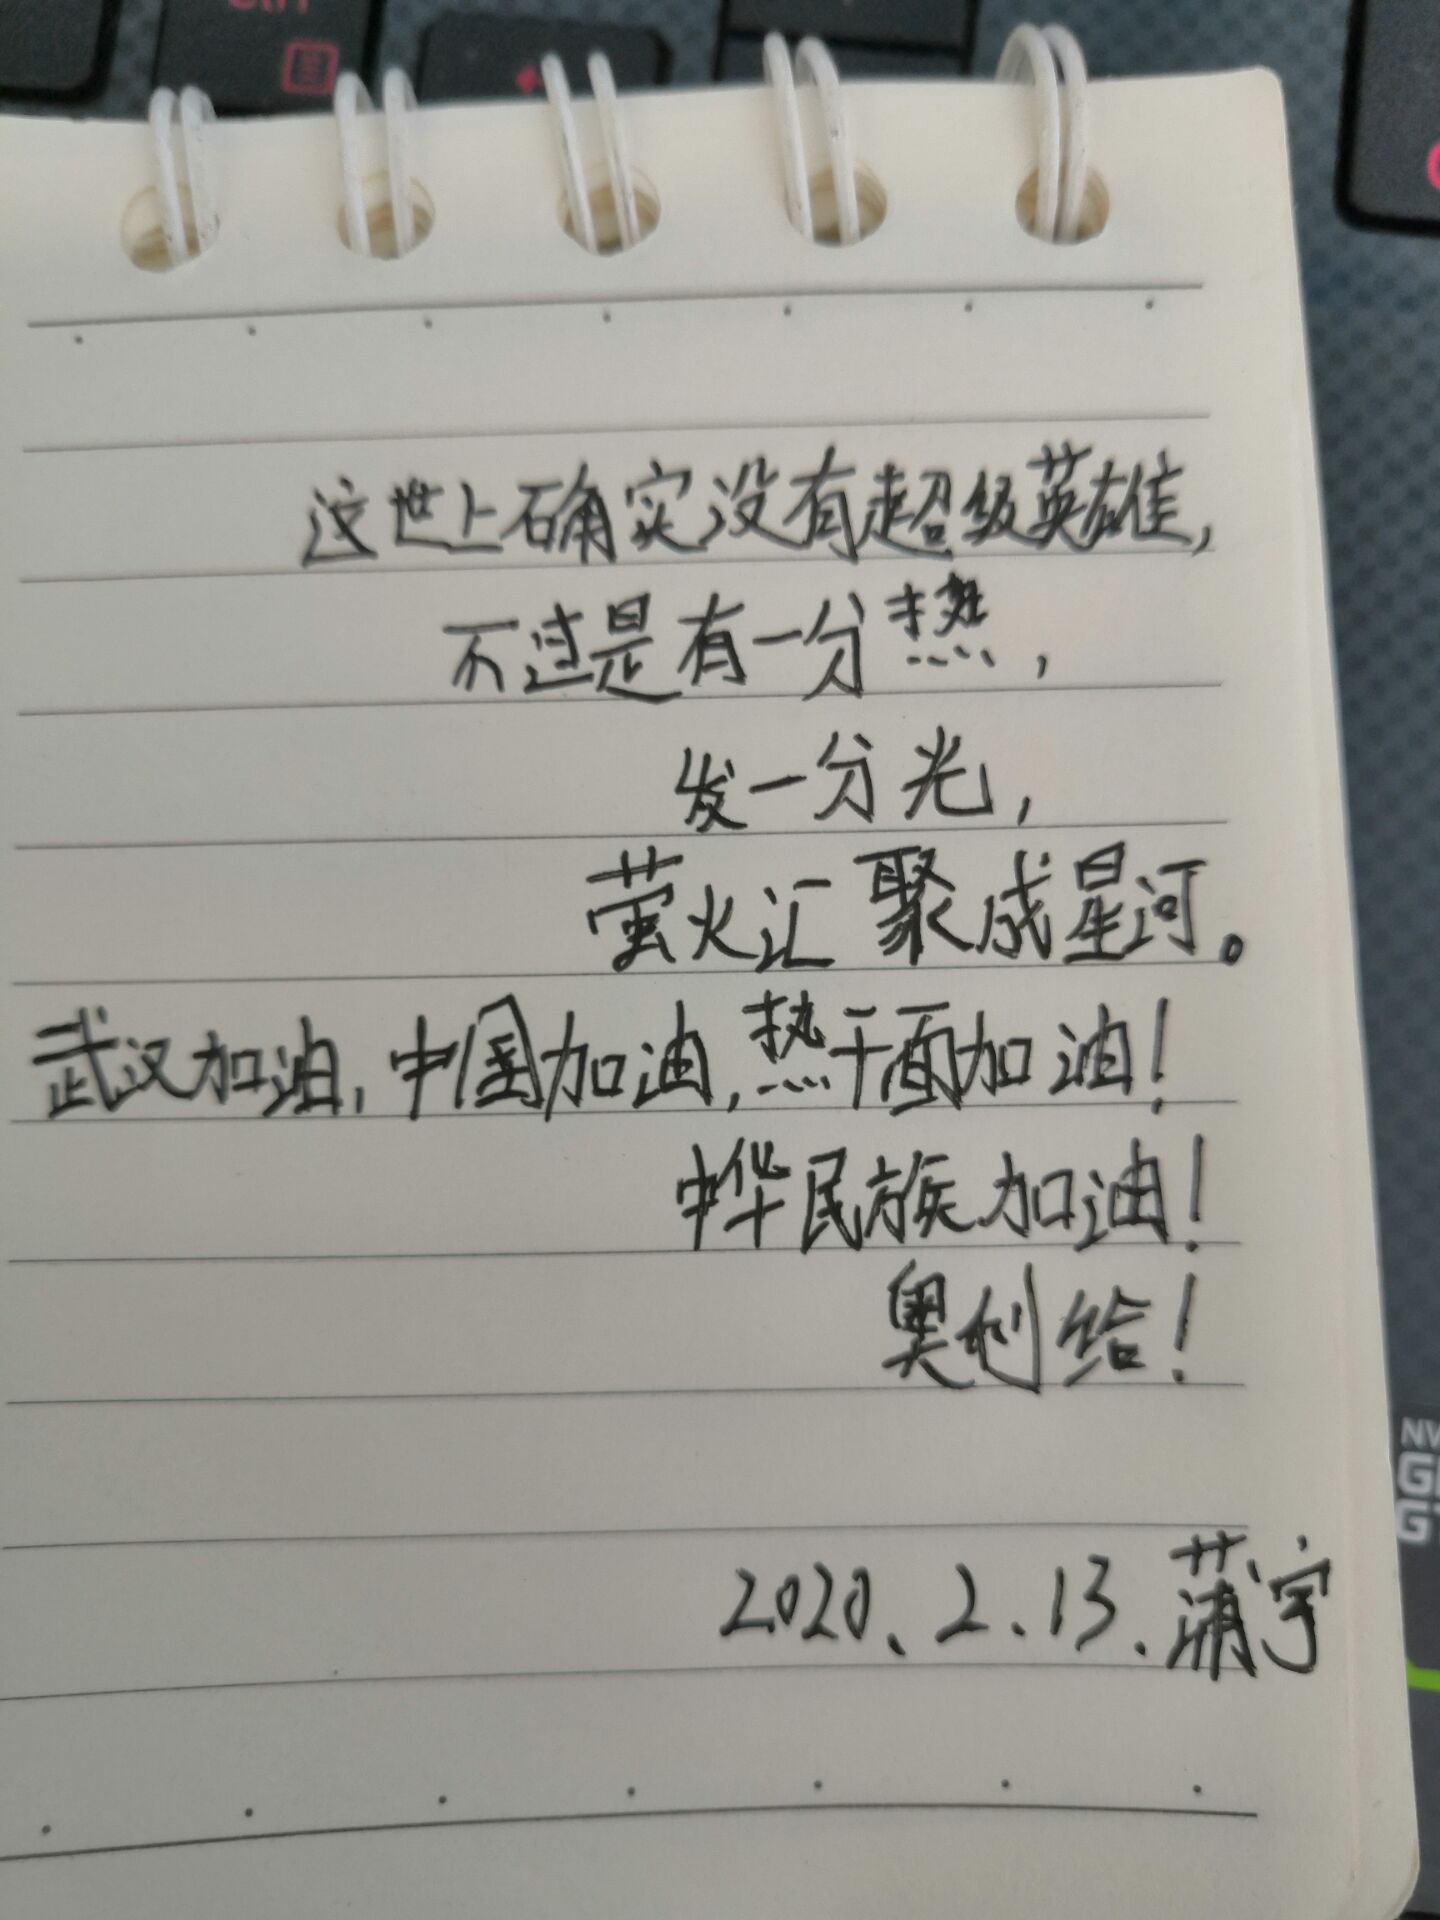 这世上确实没有超级英雄,
不过是有一分热,
发一分光,
萤火汇聚成星河。
武汉加油,中国加油,热干面加油!
中华民族加油!
奥利给!
2020、2.13.蒲宇